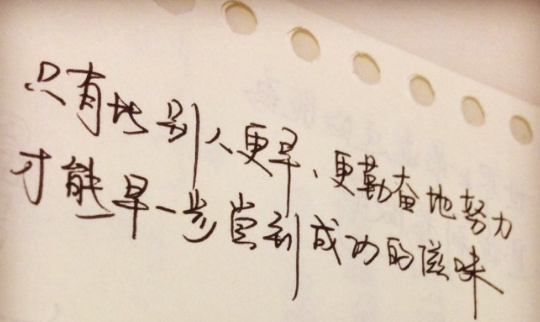 只有比别人更早、更勤奋地努力
才能早一步尝到成功的滋味